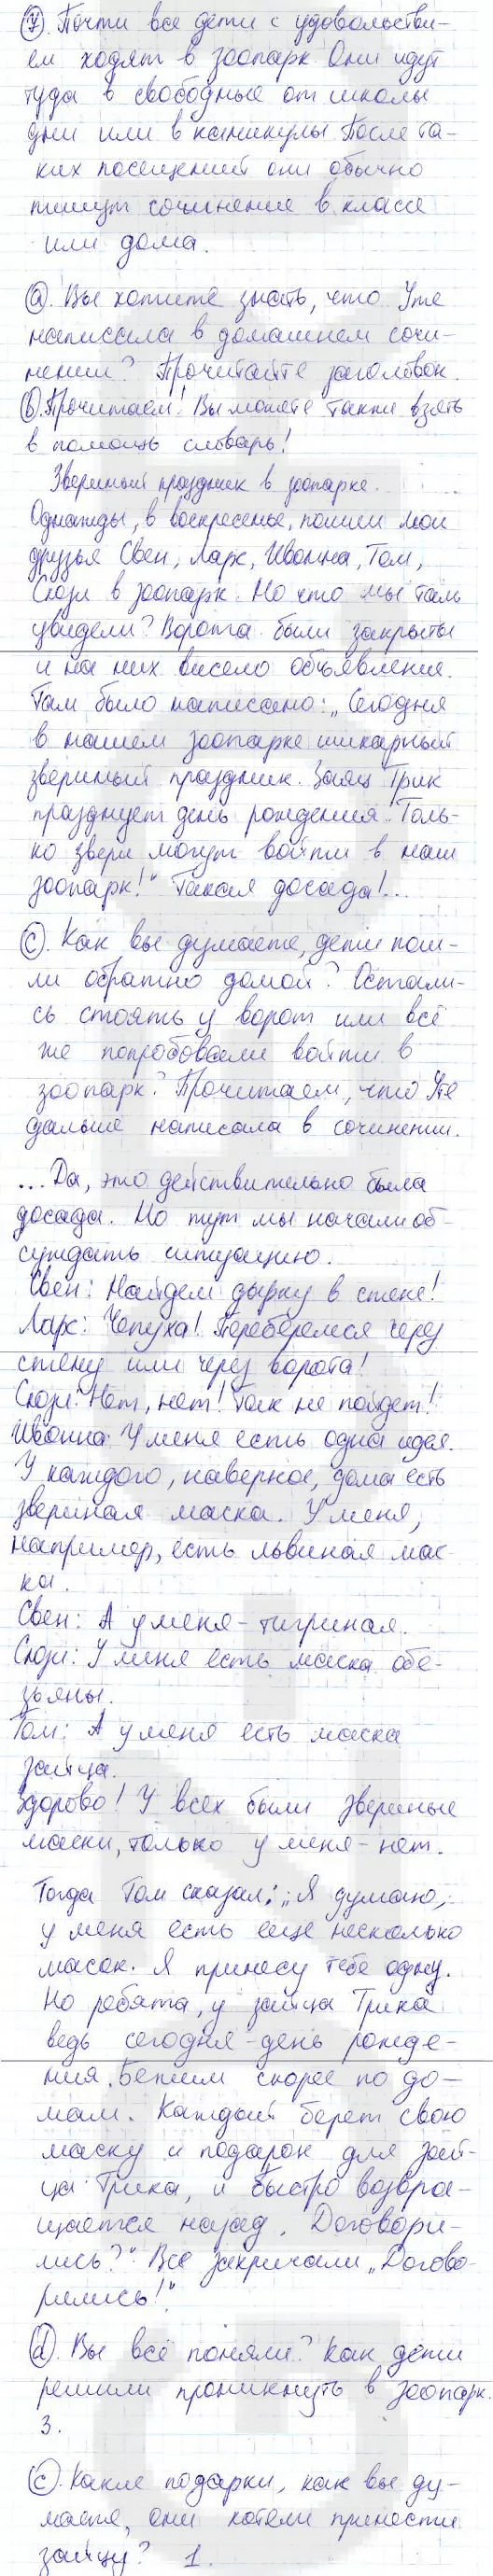 ④. Почти все дети с удовольстви-
ем ходят в зоопарк. Они идут
туда в свободные от школы
дни или в каникулы. После та-
ких посещений они обычно
пишут сочинение в классе
или дома.
ⓐ. Вы хотите знать, что Уте
написала в домашнем сочи-
нении? Прочитайте заголовок.
ⓑ. Прочитаем! Вы можете также взять
в помощь словарь!
Звериный праздник в зоопарке.
Однажды, в воскресенье, пошли мои
друзья Свен, Ларс, Ивонна, Том,
Сюзи в зоопарк. Но что мы там
увидели? Ворота были закрыты
и на них висело объявление.
Там было написано: „Сегодня
в нашем зоопарке шикарный
звериный праздник. Заяц Трик
празднует день рождения. Толь-
ко звери могут войти в наш
зоопарк!" Такая досада!...
ⓒ. Как вы думаете, дети пош-
ли обратно домой? Остали-
сь стоять у ворот или всё
же попробовали войти в
зоопарк? Прочитаем, что Уте
дальше написала в сочинении.
... Да, это действительно была
досада. Но тут мы начали об-
суждать ситуацию.
Свен: Найдем дырку в стене!
Ларс: Чепуха! Переберемся через
стену или через ворота!
Сюзи: Нет, нет! Так не пойдет!
Ивонна: У меня есть одна идея.
У каждого, наверное, дома есть
звериная маска. У меня,
например, есть львиная мас-
ка.
Свен: А у меня - тигриная.
Сюзи: У меня есть маска обе-
зьяны.
Том: А у меня есть маска
зайца.
Здорово! У всех были звериные
маски, только у меня - нет.
Тогда Том сказал: „Я думаю,
у меня есть еще несколько
масок. Я принесу тебе одну.
Но ребята, у зайца Трика
ведь сегодня - день рожде-
ния. Бежим скорее по до-
мам. Каждый берет свою
маску и подарок для зай-
ца Трика, и быстро возвра-
щается назад. Договори-
лись?" Все закричали „Догово-
рились!"
ⓓ. Вы всё поняли? Как дети
решили проникнуть в зоопарк.
3.
ⓒ. Какие подарки, как вы ду-
маете, они хотели принести
зайцу? 1.